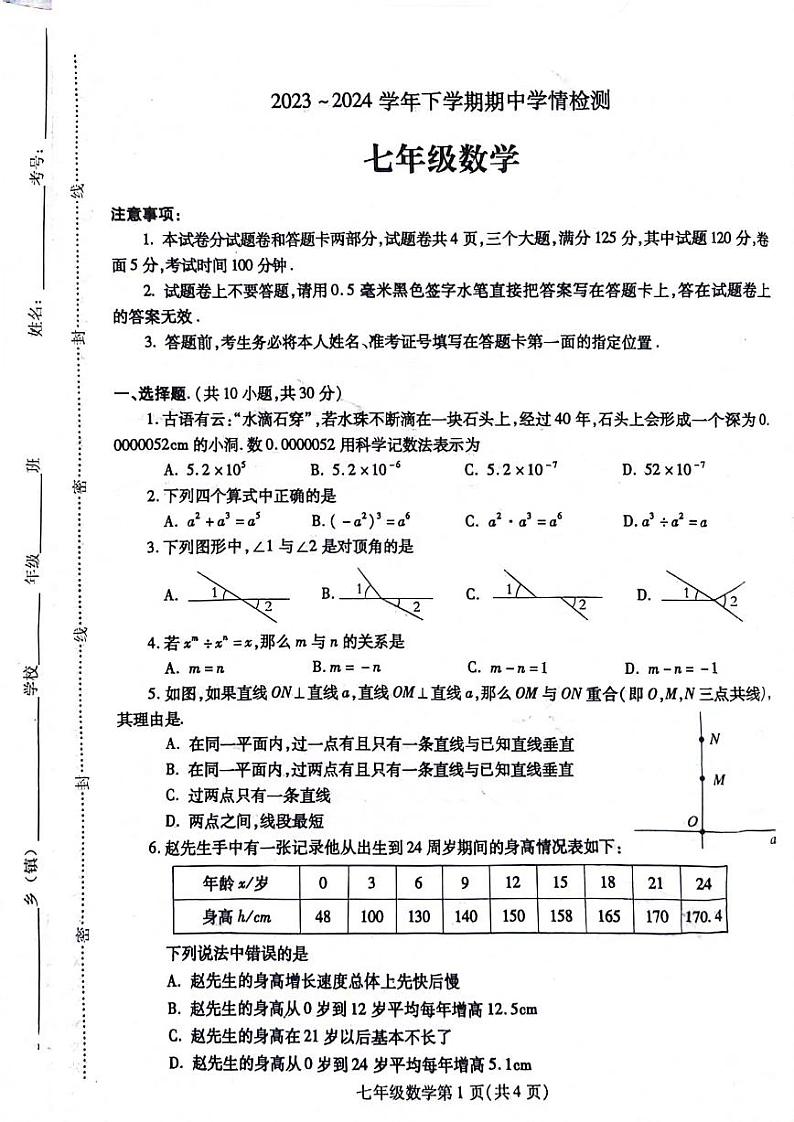 2023~2024学年下学期期中学情检测
七年级数学
注意事项:
1. 本试卷分试题卷和答题卡两部分,试题卷共4页,三个大题,满分125分,其中试题120分,卷
面5分,考试时间100分钟.
2. 试题卷上不要答题,请用0.5毫米黑色签字水笔直接把答案写在答题卡上,答在试题卷上
的答案无效.
3. 答题前,考生务必将本人姓名、准考证号填写在答题卡第一面的指定位置.
一、选择题.(共10小题,共30分)
1.古语有云:“水滴石穿”,若水珠不断滴在一块石头上,经过40年,石头上会形成一个深为0.
0000052cm的小洞.数0.0000052用科学记数法表示为
A. 5.2×10⁵ B. 5.2×10⁻⁶ C. 5.2×10⁻⁷ D. 52×10⁻⁷
2.下列四个算式中正确的是
A. a²+a³=a⁵ B.(-a²)³=a⁶ C. a²·a³=a⁶ D.a³÷a²=a
3.下列图形中,∠1与∠2是对顶角的是
A. 1 2 B. 1 2 C. 1 2 D. 1 2
4.若xᵐ÷xⁿ=x,那么m与n的关系是
A. m=n B.m=-n C. m-n=1 D. m-n=-1
5.如图,如果直线ON⊥直线a,直线OM⊥直线a,那么OM与ON重合(即O,M,N三点共线),
其理由是.
A. 在同一平面内,过一点有且只有一条直线与已知直线垂直
B. 在同一平面内,过两点有且只有一条直线与已知直线垂直
C. 过两点只有一条直线
D. 两点之间,线段最短
N
M
O
a
6.赵先生手中有一张记录他从出生到24周岁期间的身高情况表如下:
年龄x/岁 0 3 6 9 12 15 18 21 24
身高h/cm 48 100 130 140 150 158 165 170 170.4
下列说法中错误的是
A. 赵先生的身高增长速度总体上先快后慢
B. 赵先生的身高从0岁到12岁平均每年增高12.5cm
C. 赵先生的身高在21岁以后基本不长了
D. 赵先生的身高从0岁到24岁平均每年增高5.1cm
七年级数学第1页(共4页)
乡(镇) 学校 年级 班 姓名: 考号:
密 封 线 密 封 线